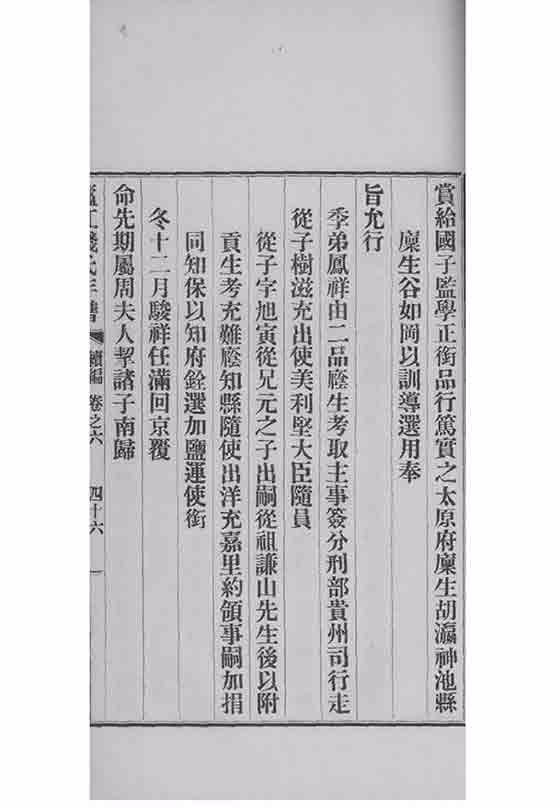 賞給國子監學正銜品行篤實之太原府廩生胡瀛神池縣
廩生谷如岡以訓導選用奉
旨允行
季弟鳳祥由二品廕生考取主事簽分刑部貴州司行走
從子樹滋充出使美利堅大臣隨員
從子字旭寅從兄元之子出嗣從祖謙山先生後以附
貢生考充難廕知縣隨使出洋充嘉里約領事嗣加捐
同知保以知府銓選加鹽運使銜
冬十二月駿祥任滿回京覆
命先期屬周夫人挈諸子南歸
錢氏年譜 續編 卷之六 四十六